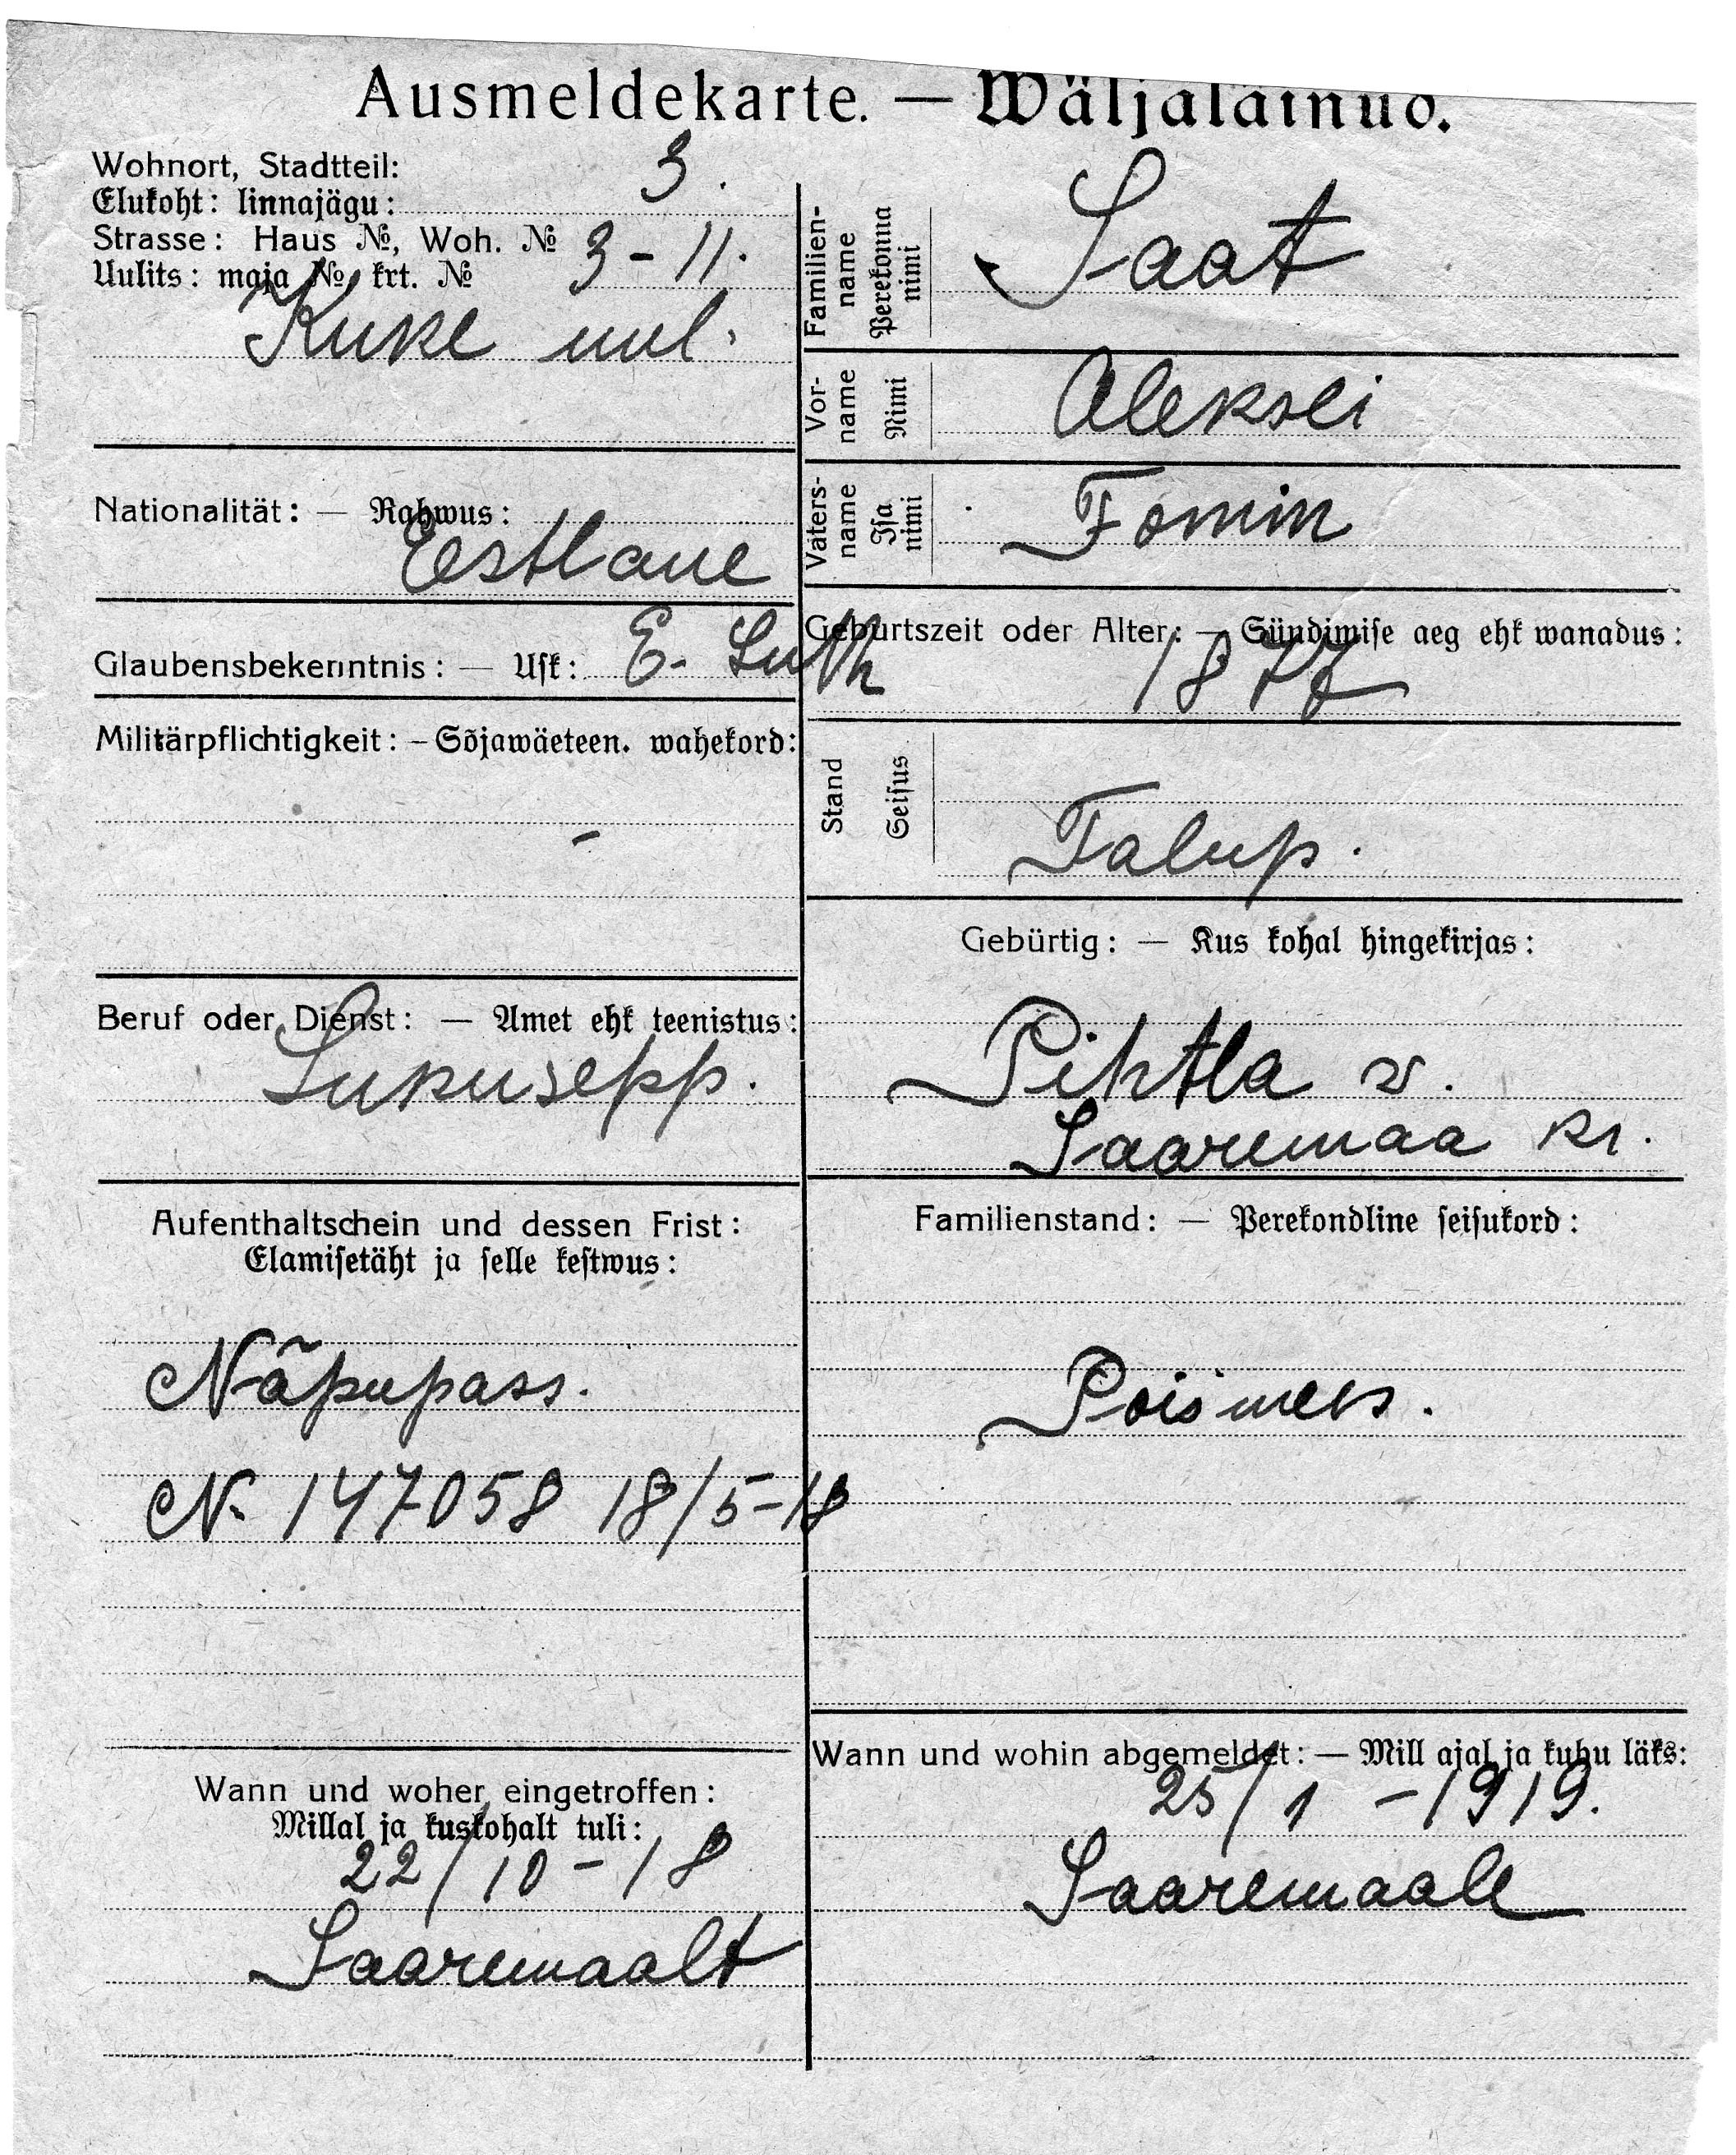 Ausmeldekarte. — Wäljalainud.
Wohnort, Stadtteil:
Elukoht: linnajägu: 3.
Strasse: Haus №, Woh. № 3-11.
Uulits: maja № krt. №
Kuke uul.
Nationalität: — Rahwus:
Eestlane
Glaubensbekenntnis: — Usk: E. Luth
Militärpflichtigkeit: – Sõjawäeteen. wahekord:
–
Beruf oder Dienst: — Amet ehk teenistus:
Lukusepp.
Aufenthaltschein und dessen Frist:
Elamisetäht ja selle kestwus:
Nãpupass.
N. 147058 18/5-18
Wann und woher eingetroffen:
Millal ja kuskohalt tuli:
22/10-18
Saaremaalt
Familien-
name
Perekonna
nimi
Saat
Vor-
name
Nimi
Aleksei
Vaters-
name
Isa
nimi
Fomin
Geburtszeit oder Alter: — Sündimise aeg ehk wanadus:
1877
Stand
Seisus
Talup.
Gebürtig: — Kus kohal hingekirjas:
Pihtla v.
Saaremaa kr.
Familienstand: — Perekondline seisukord:
Poismees.
Wann und wohin abgemeldet: — Mill ajal ja kuhu läks:
25/1 -1919.
Saaremaale